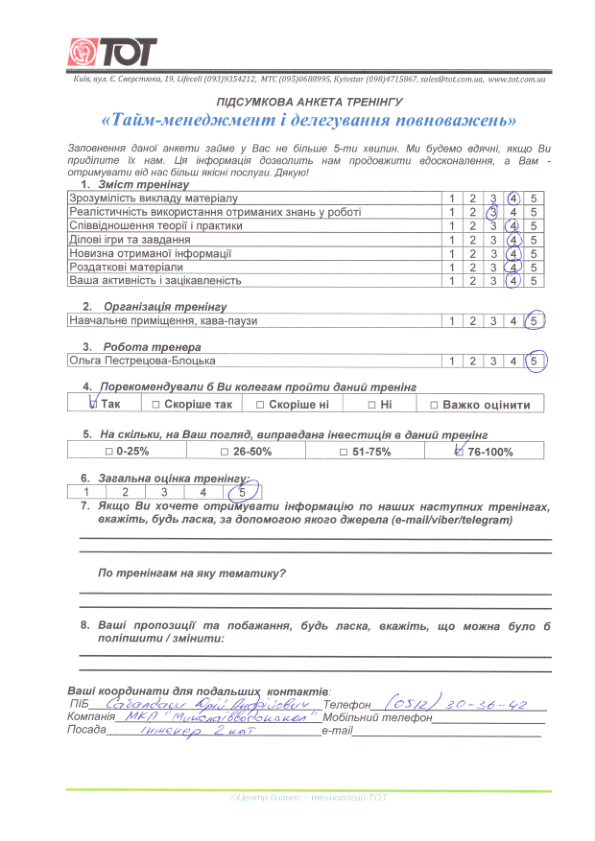 ТОТ
Київ, вул. Є. Сверстюка, 19, Lifecell (093)9354212, МТС (095)0688995, Kyivstar (098)4715867, sales@tot.com.ua, www.tot.com.ua
ПІДСУМКОВА АНКЕТА ТРЕНІНГУ
«Тайм-менеджмент і делегування повноважень»
Заповнення даної анкети займе у Вас не більше 5-ти хвилин. Ми будемо вдячні, якщо Ви
приділите їх нам. Ця інформація дозволить нам продовжити вдосконалення, а Вам -
отримувати від нас більш якісні послуги. Дякую!
1. Зміст тренінгу
Зрозумілість викладу матеріалу 1 2 3 4 5
Реалістичність використання отриманих знань у роботі 1 2 3 4 5
Співвідношення теорії і практики 1 2 3 4 5
Ділові ігри та завдання 1 2 3 4 5
Новизна отриманої інформації 1 2 3 4 5
Роздаткові матеріали 1 2 3 4 5
Ваша активність і зацікавленість 1 2 3 4 5
2. Організація тренінгу
Навчальне приміщення, кава-паузи 1 2 3 4 5
3. Робота тренера
Ольга Пестрецова-Блоцька 1 2 3 4 5
4. Порекомендували б Ви колегам пройти даний тренінг
☑ Так □ Скоріше так □ Скоріше ні □ Ні □ Важко оцінити
5. На скільки, на Ваш погляд, виправдана інвестиція в даний тренінг
□ 0-25% □ 26-50% □ 51-75% ☑ 76-100%
6. Загальна оцінка тренінгу:
1 2 3 4 5
7. Якщо Ви хочете отримувати інформацію по наших наступних тренінгах,
вкажіть, будь ласка, за допомогою якого джерела (e-mail/viber/telegram)
По тренінгам на яку тематику?
8. Ваші пропозиції та побажання, будь ласка, вкажіть, що можна було б
поліпшити / змінити:
Ваші координати для подальших контактів:
ПІБ Юрій Андрійович Телефон (0512) 30-36-42
Компанія МКП "Миколаївводоканал" Мобільний телефон
Посада Інженер 2 кат e-mail
©Центр бізнес – технологий ТОТ